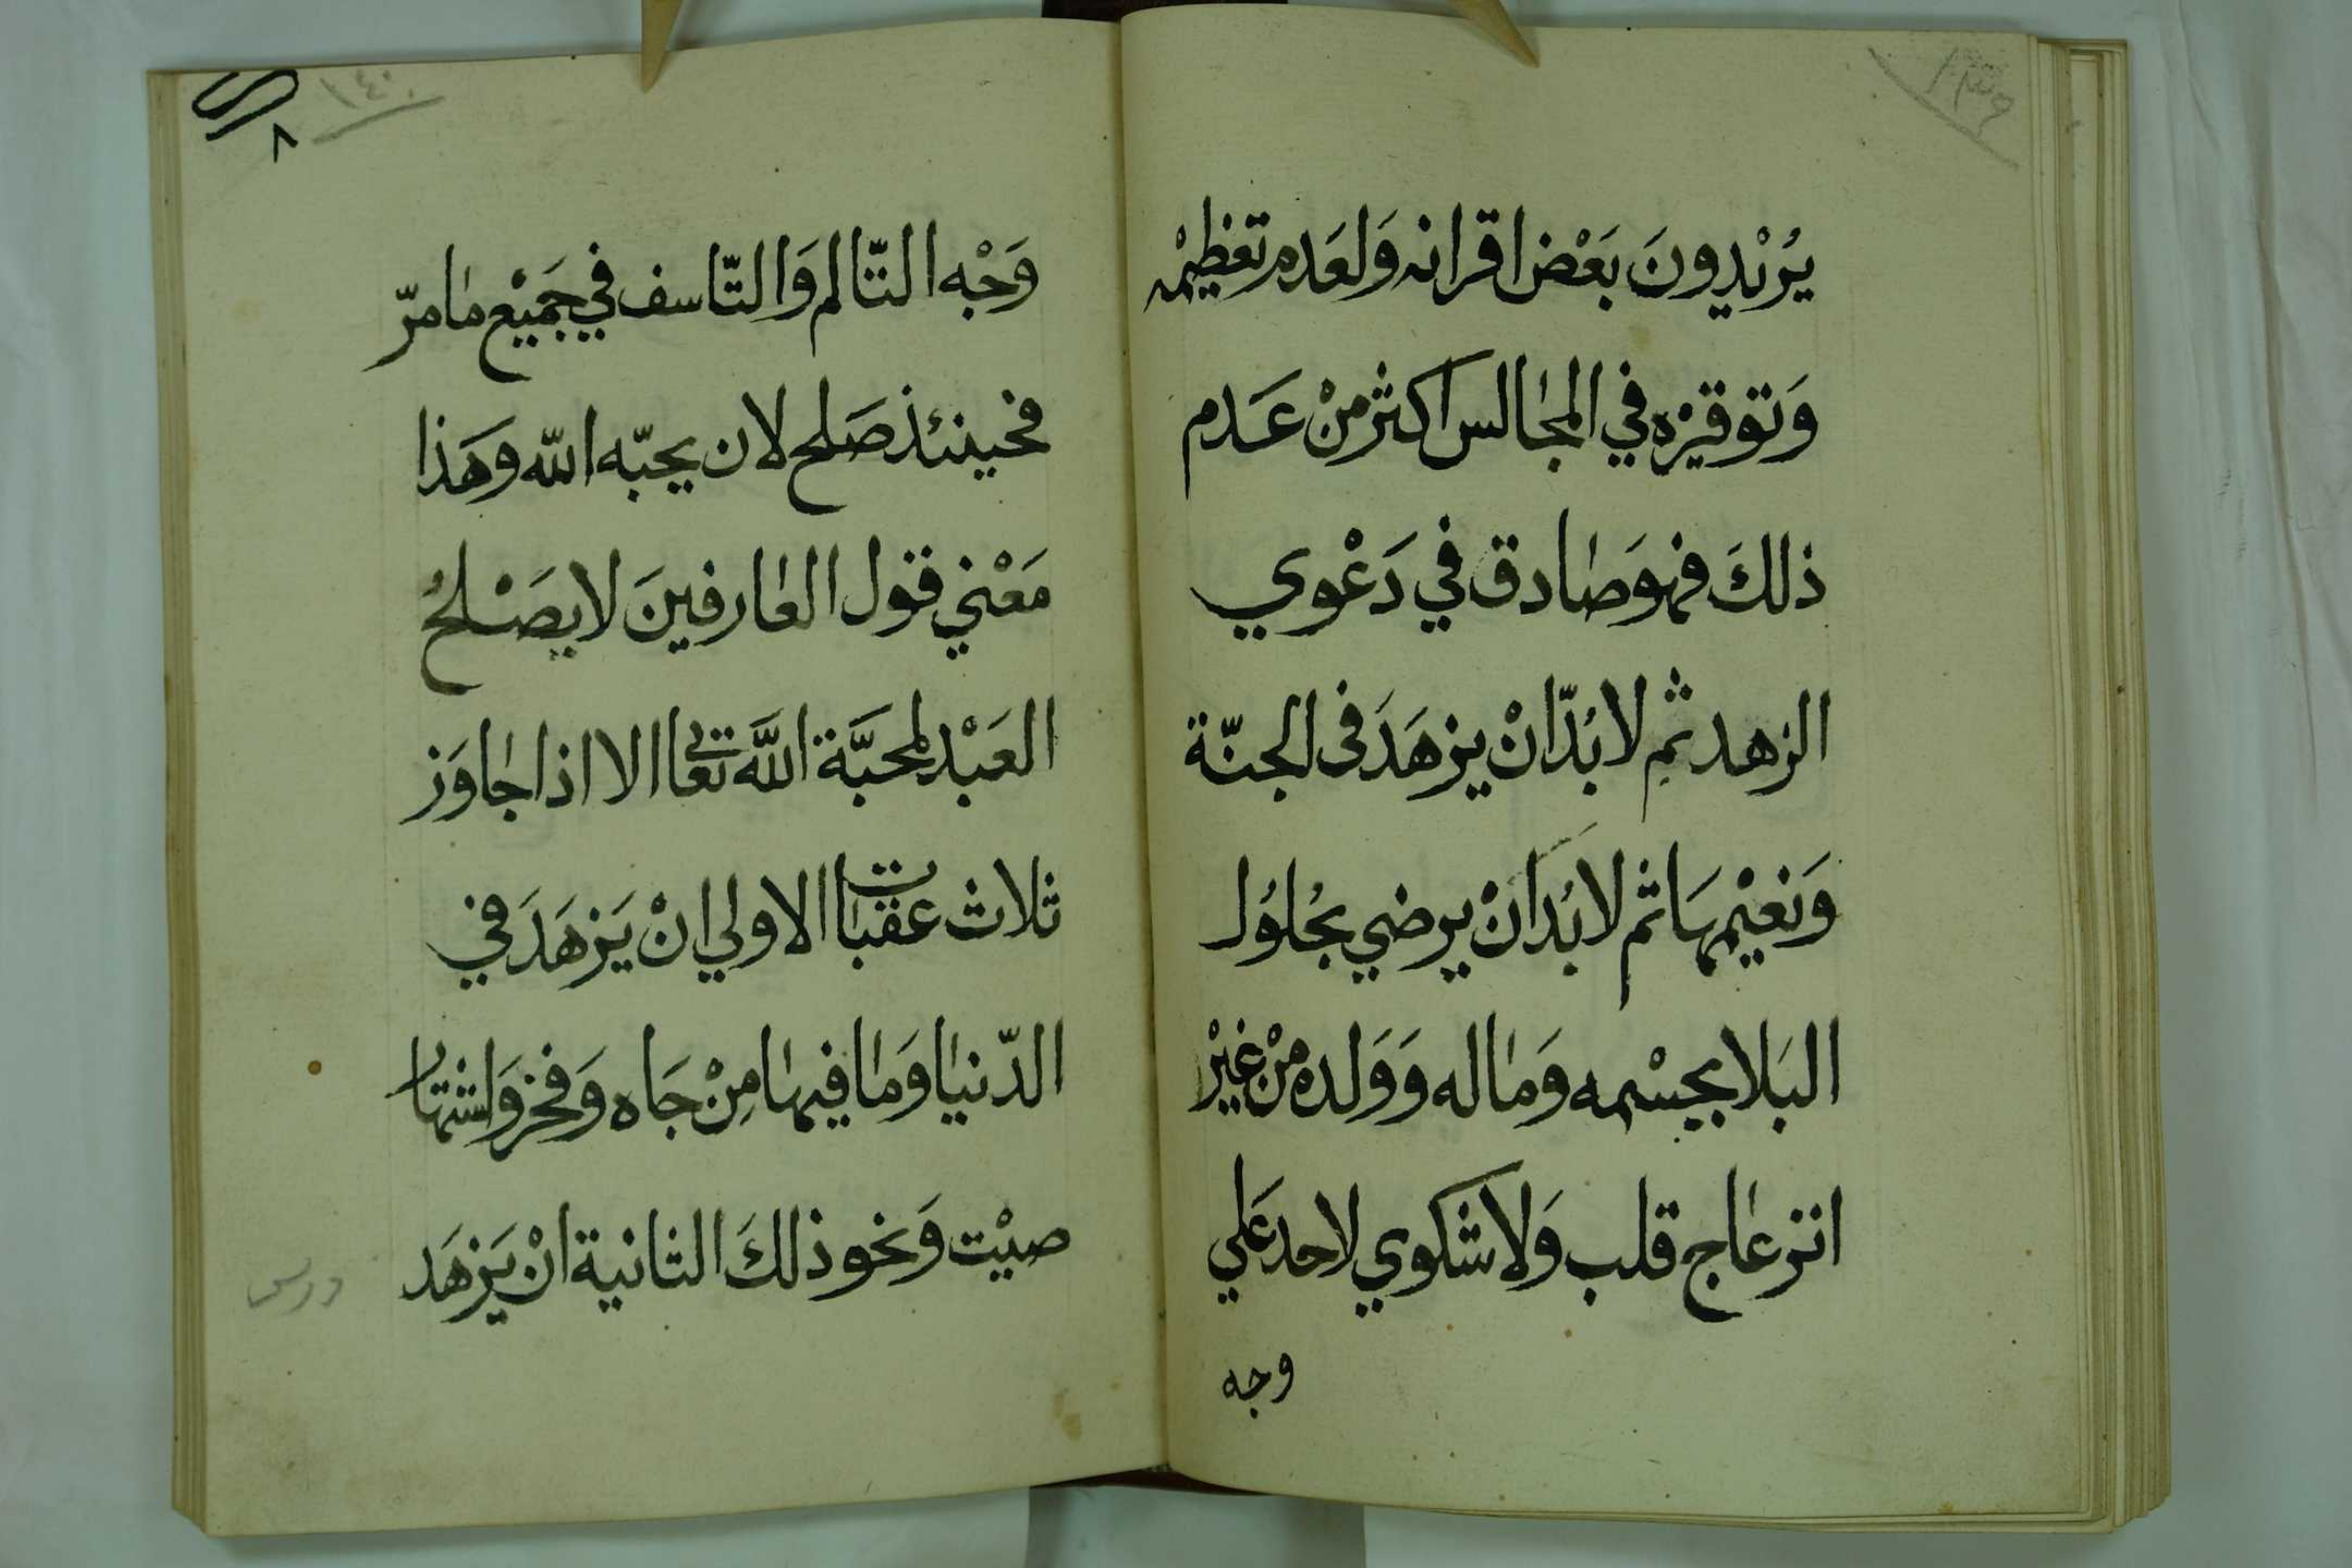 ١٣٩
يُرْيْدِونَ بَعْض اقرانه وَلعَدم تعظيمْه
وَتوقيْره في المجالس اكثر منْ عَدم
ذلكَ فهوَ صادق في دَعْوي
الزهد ثم لا بُدّ انْ يزهَدَ في الجنّة
وَنعيْمها ثم لا بُدَ انْ يرضي بحُلوُل
البَلا بجسْمه وَماله وَوَلده منْ غيْر
انزعاج قلب وَلا شكوي لاحد عَلي
وجه
١٤٠
٨
وَجْه التّالم وَالتّاسف في جَميْع ما مرّ
فحينئذ صَلح لان يحبّه الله وَهَذا
مَعْني قول العارفينَ لا يصَلحُ
العَبْد لمحبَّة اللَّه تعالي الا اذا جاوَز
ثلاث عقبات الاولي انْ يَزهَدَ في
الدّنيا وَما فيها مِنْ جَاه وَفخر وَاشتهار
صيْت وَنحو ذلكَ الثانية انْ يَزهَد
درس